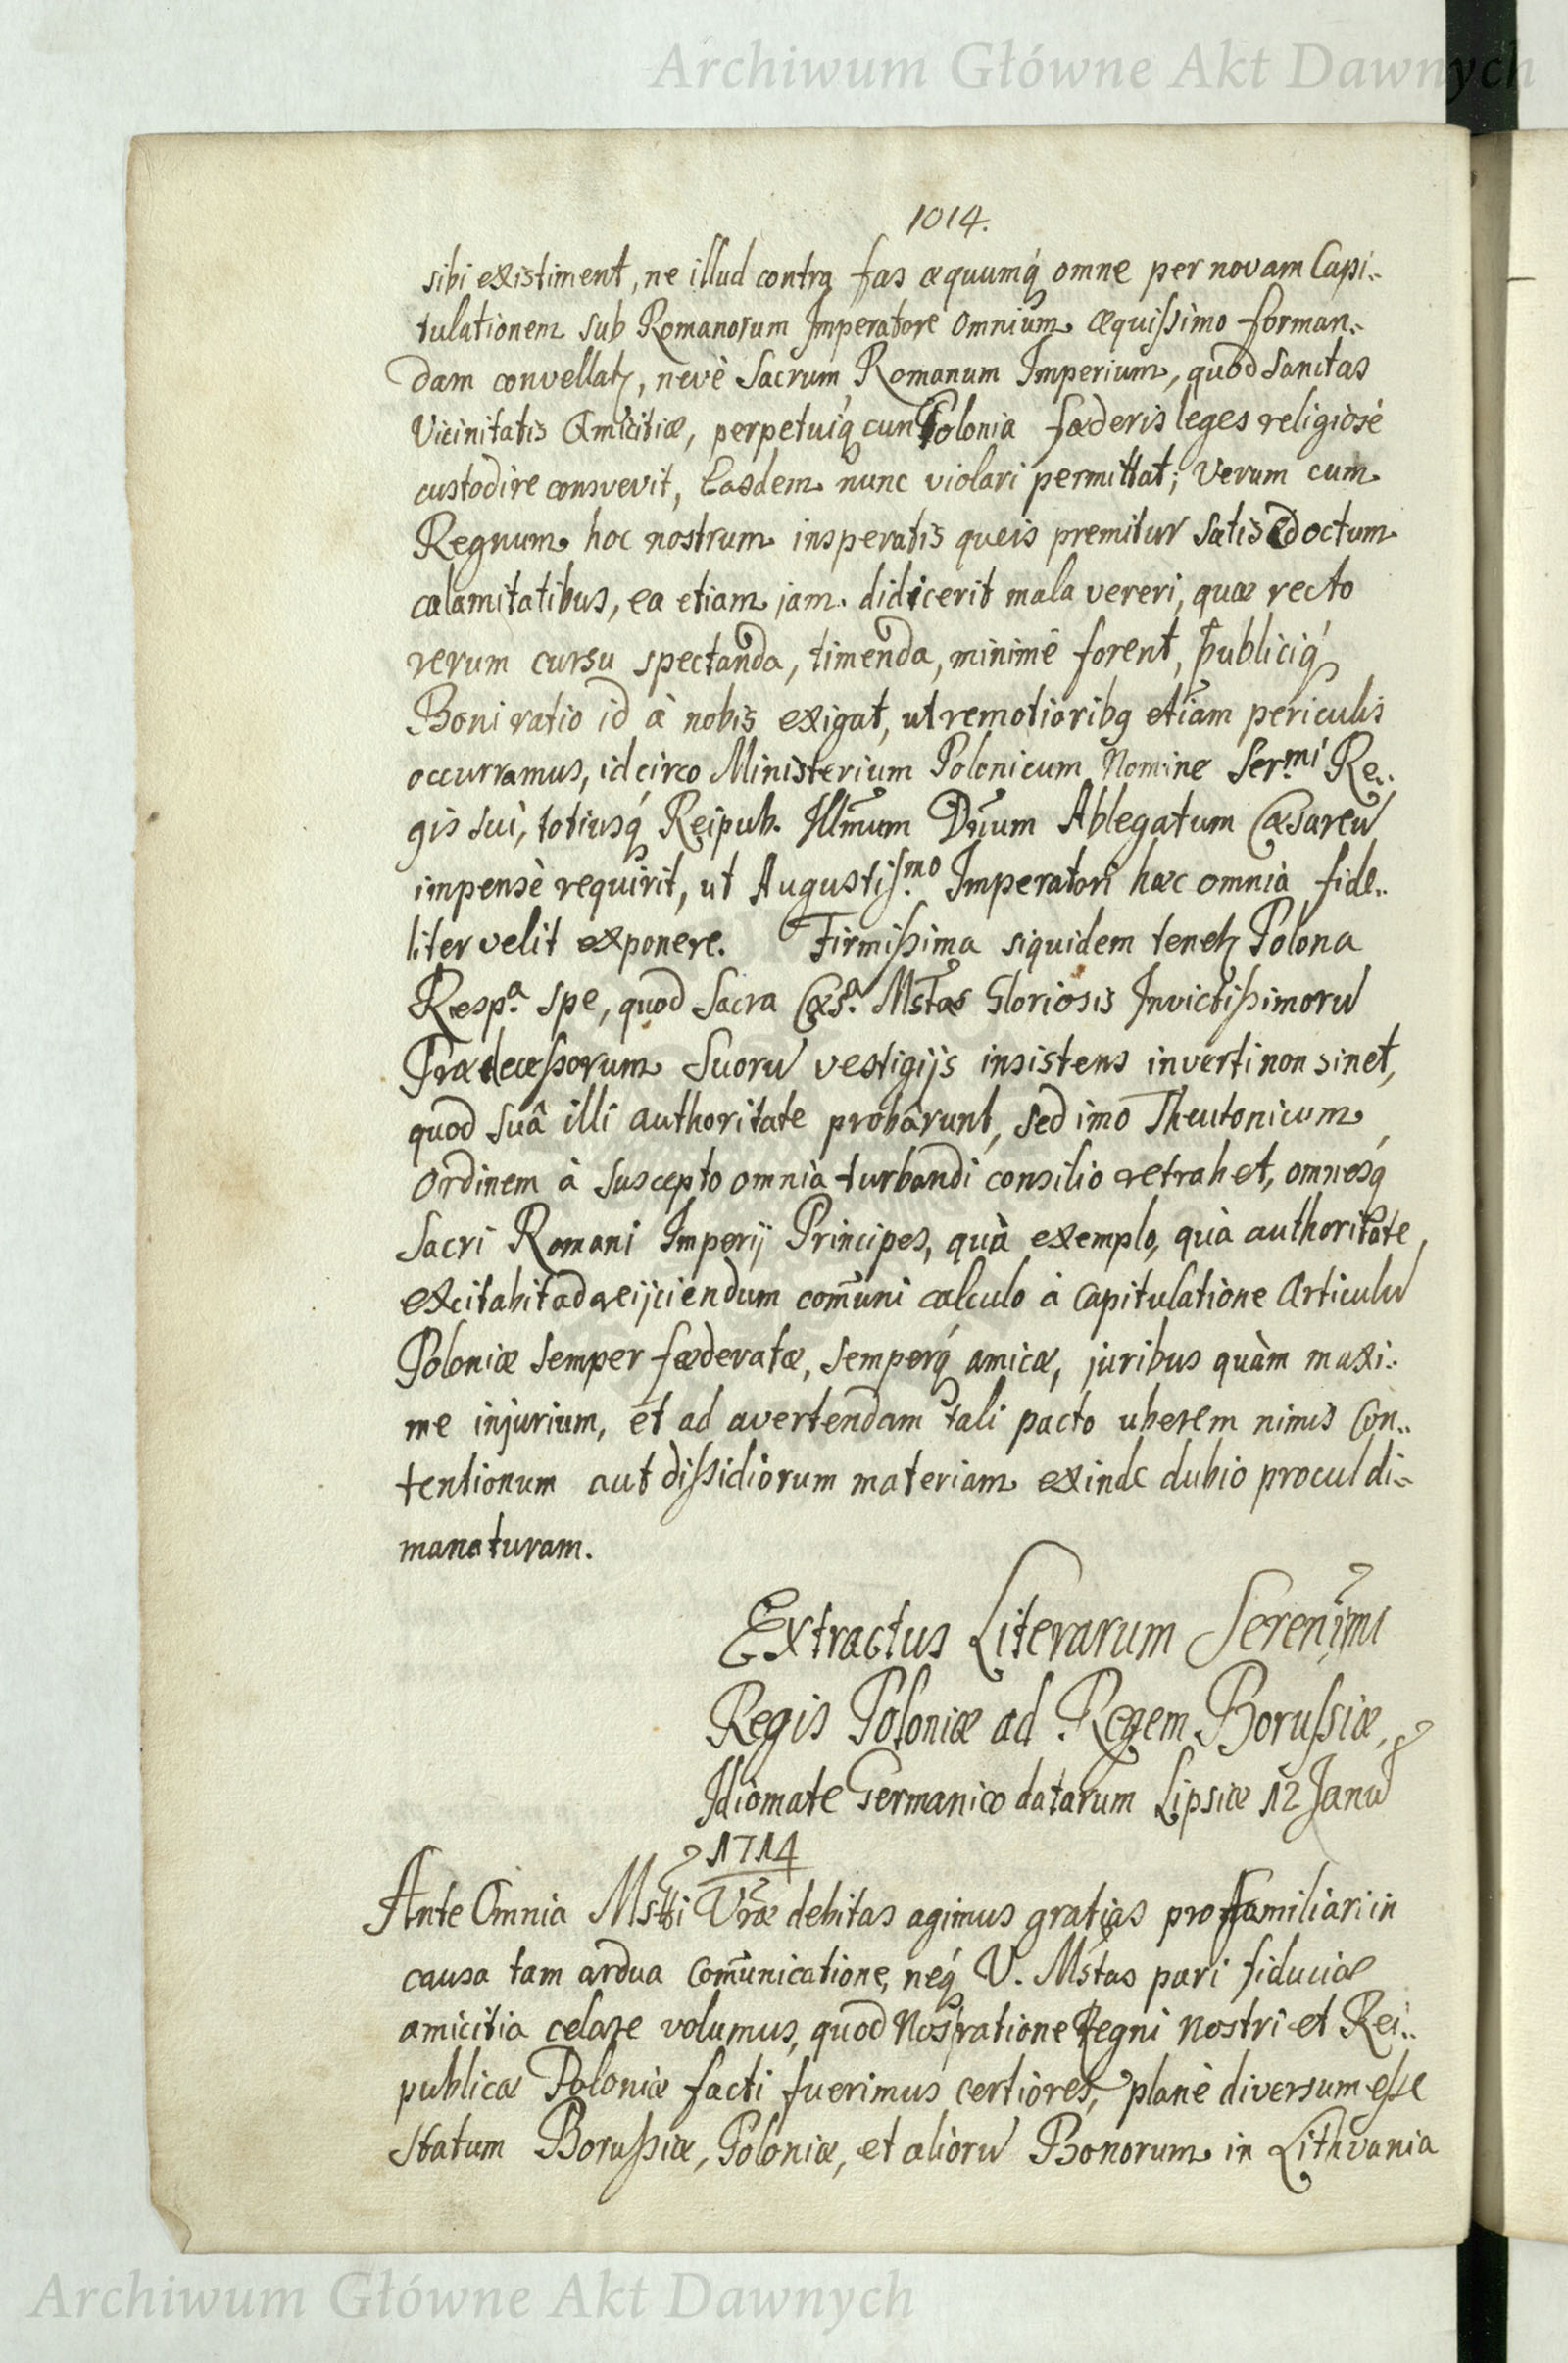 Archiwum Główne Akt Dawnych
1014.
sibi existiment, ne illud contra fas æquumq́ omne per novam Capi-
tulationem sub Romanorum Imperatore Omnium æquissimo forman-
dam convellatr, nevè Sacrum Romanum Imperium, quod sanctas
Vicinitatis Amicitiæ, perpetuiq́ cum Polonia fæderis leges religiosè
custodire consvevit, Easdem nunc violari permittat; Verum cum
Regnum hoc nostrum insperatis queis premitur satis edoctum
calamitatibus, ea etiam jam didicerit mala vereri, quæ recto
rerum cursu spectanda, timenda, minimè forent, Publiciq́
Boni ratio id à nobis exigat, ut remotioribq etiam periculis
occurramus, idcirco Ministerium Polonicum Nomine Ser.mi Re-
gis sui, totiusq́ Reipub. Illm̃um Dñum Ablegatum Cæsareũ
impensè requirit, ut Augustis.mo Imperatori hæc omnia fide-
liter velit exponere. Firmissima siquidem tenetr Polona
Resp.a spe, quod Sacra Cæs.a Mstãs Gloriosis Invictissimorũ
Prædecessorum Suorũ vestigijs insistens inverti non sinet,
quod suâ illi authoritate probârunt, sed imo Theutonicum
Ordinem à suscepto omnia turbandi consilio retrahet, omnesq́
Sacri Romani Imperij Principes, quà exemplo, quà authoritate,
excitabit ad reijciendum com̃uni calculo à Capitulatione Articulũ
Poloniæ semper fæderatæ, semperq́ amicæ, juribus quàm maxi-
me injurium, et ad avertendam tali pacto uberem nimis Con-
tentionum aut dissidiorum materiam exinde dubio procul di-
manaturam.
Extractus Literarum Serenim̃i
Regis Poloniæ ad Regem Borussiæ,
Idiomate Germanico datarum Lipsiæ 12 Janũ
1714
Ante Omnia Mstti Vræ debitas agimus gratias pro familiari in
causa tam ardua Com̃unicatione, neq́ V. Mstas pari fiducia
amicitia celare volumus, quod Nos ratione Regni Nostri et Rei-
publicæ Poloniæ facti fuerimus certiores, planè diversum esse
Statum Borussiæ, Poloniæ, et aliorũ Bonorum in Lithvania
Archiwum Główne Akt Dawnych